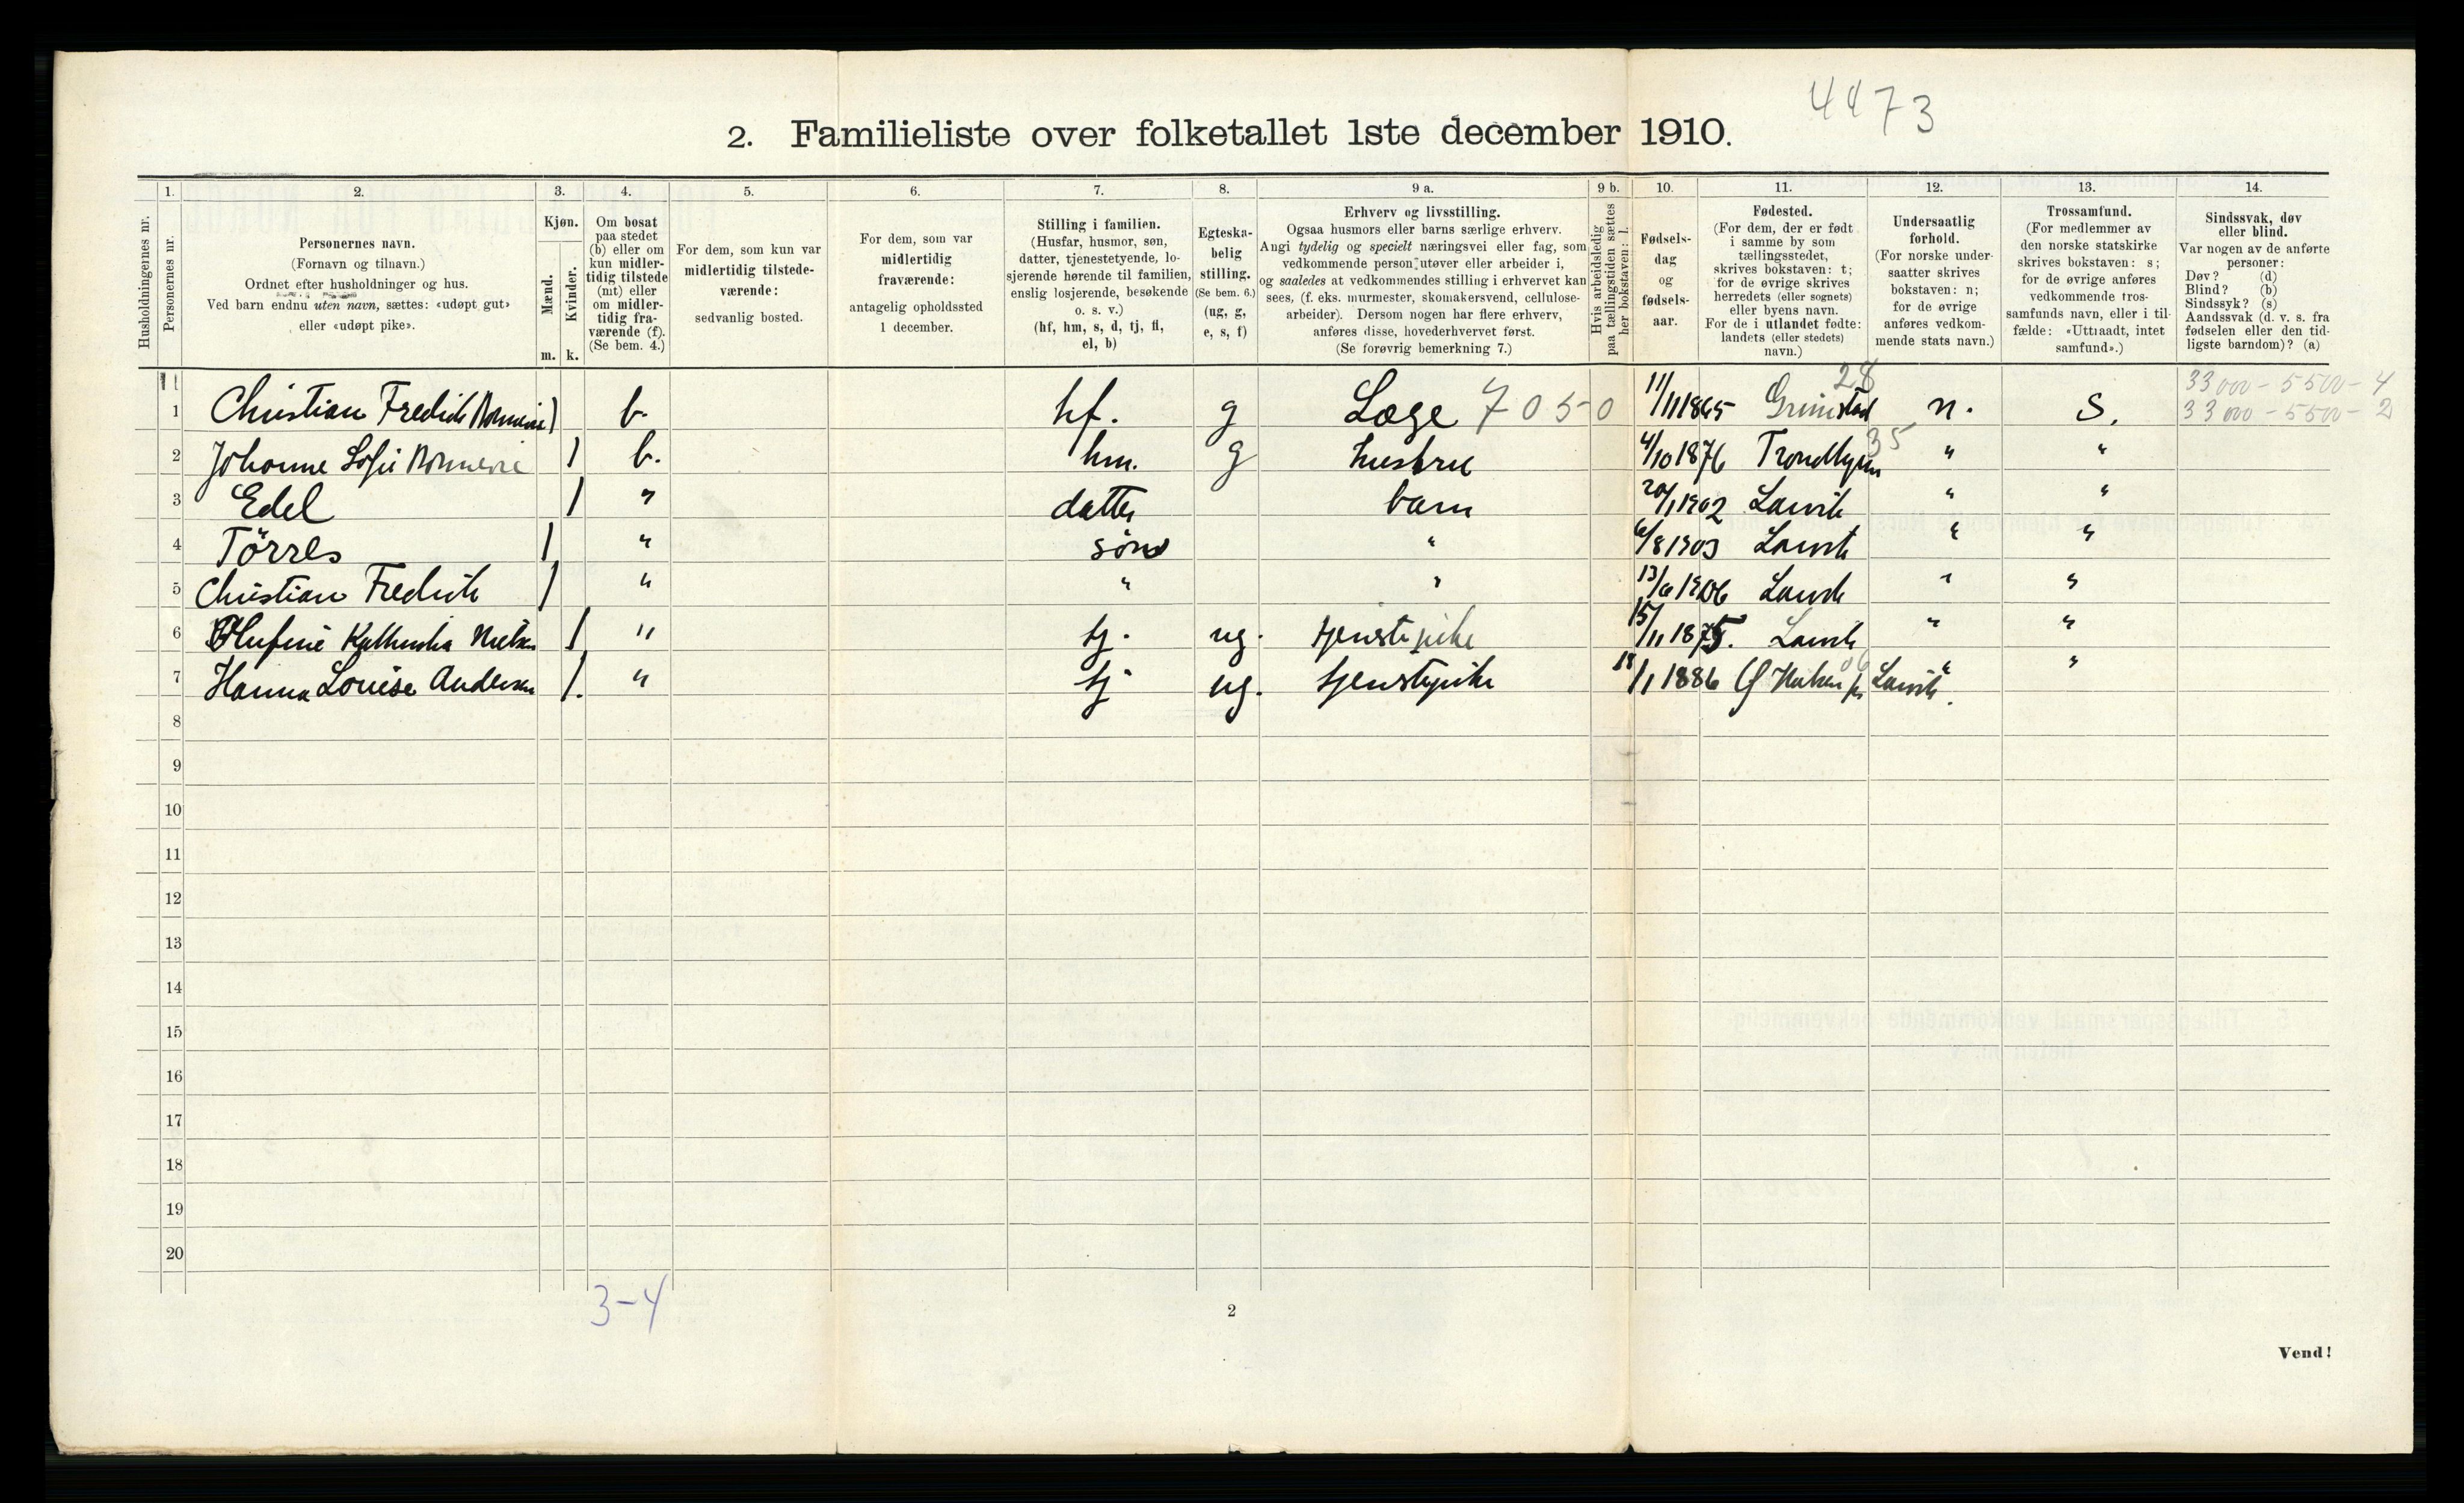 4473
2. Familieliste over folketallet 1ste december 1910.
1. 2. 3. 4. 5. 6. 7. 8. 9 a. 9 b. 10. 11. 12. 13. 14.
Husholdningernes nr.
Personernes nr.
Personernes navn.
(Fornavn og tilnavn.)
Ordnet efter husholdninger og hus.
Ved barn endnu uten navn, sættes: «udøpt gut»
eller «udøpt pike».
Kjøn.
Mænd.
Kvinder.
m. k.
Om bosat
paa stedet
(b) eller om
kun midler-
tidig tilstede
(mt) eller
om midler-
tidig fra-
værende (f).
(Se bem. 4.)
For dem, som kun var
midlertidig tilstede-
værende:
sedvanlig bosted.
For dem, som var
midlertidig
fraværende:
antagelig opholdssted
1 december.
Stilling i familien.
(Husfar, husmor, søn,
datter, tjenestetyende, lo-
sjerende hørende til familien,
enslig losjerende, besøkende
o. s. v.)
(hf, hm, s, d, tj, fl,
el, b)
Egteska-
belig
stilling.
(Se bem. 6.)
(ug, g,
e, s, f)
Erhverv og livsstilling.
Ogsaa husmors eller barns særlige erhverv.
Angi tydelig og specielt næringsvei eller fag, som
vedkommende person utøver eller arbeider i,
og saaledes at vedkommendes stilling i erhvervet kan
sees, (f. eks. murmester, skomakersvend, cellulose-
arbeider). Dersom nogen har flere erhverv,
anføres disse, hovederhvervet først.
(Se forøvrig bemerkning 7.)
Hvis arbeidsledig
paa tællingstiden sættes
her bokstaven: l.
Fødsels-
dag
og
fødsels-
aar.
Fødested.
(For dem, der er født
i samme by som
tællingsstedet,
skrives bokstaven: t;
for de øvrige skrives
herredets (eller sognets)
eller byens navn.
For de i utlandet fødte:
landets (eller stedets)
navn.)
Undersaatlig
forhold.
(For norske under-
saatter skrives
bokstaven: n;
for de øvrige
anføres vedkom-
mende stats navn.)
Trossamfund.
(For medlemmer av
den norske statskirke
skrives bokstaven: s;
for de øvrige anføres
vedkommende tros-
samfunds navn, eller i til-
fælde: «Uttraadt, intet
samfund».)
Sindssvak, døv
eller blind.
Var nogen av de anførte
personer:
Døv? (d)
Blind? (b)
Sindssyk? (s)
Aandssvak (d. v. s. fra
fødselen eller den tid-
ligste barndom)? (a)
28 33000 - 5500 - 4
1 Christian Fredrik b. hf. g Læge 7050 11/11 1865 Grimstad n. S. 33000 - 5500 - 2
35
2 Johanne Sofie 1 b. hm. g hustru 4/10 1876 Trondhjem " "
3 Edel 1 " datter barn 20/1 1902 Larvik " "
4 Törres 1 " sön " 6/8 1903 Larvik " "
5 Christian Fredrik 1 " " " 13/6 1906 Larvik " "
6 Olufine Nielsen 1 " tj. ug. tjenstepike 15/11 1875. Larvik " "
7 Hanna Louise Andersen 1. " tj ug. tjenstepike 18/1 1886 Larvik. " "
8
9
10
11
12
13
14
15
16
17
18
19
20
3-4
2
Vend!